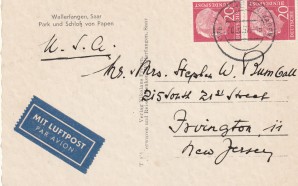 Wallerfangen, Saar
Park und Schloß von Papen
U. S. A.
20
20
Mr. Mrs. Stephen W. Bumball
215 South 21st Street
Irvington 11
New Jersey
MIT LUFTPOST
PAR AVION